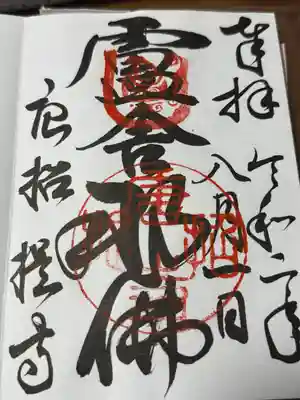 奉拝
令和二年
八月一日
盧舎那佛
唐招提寺